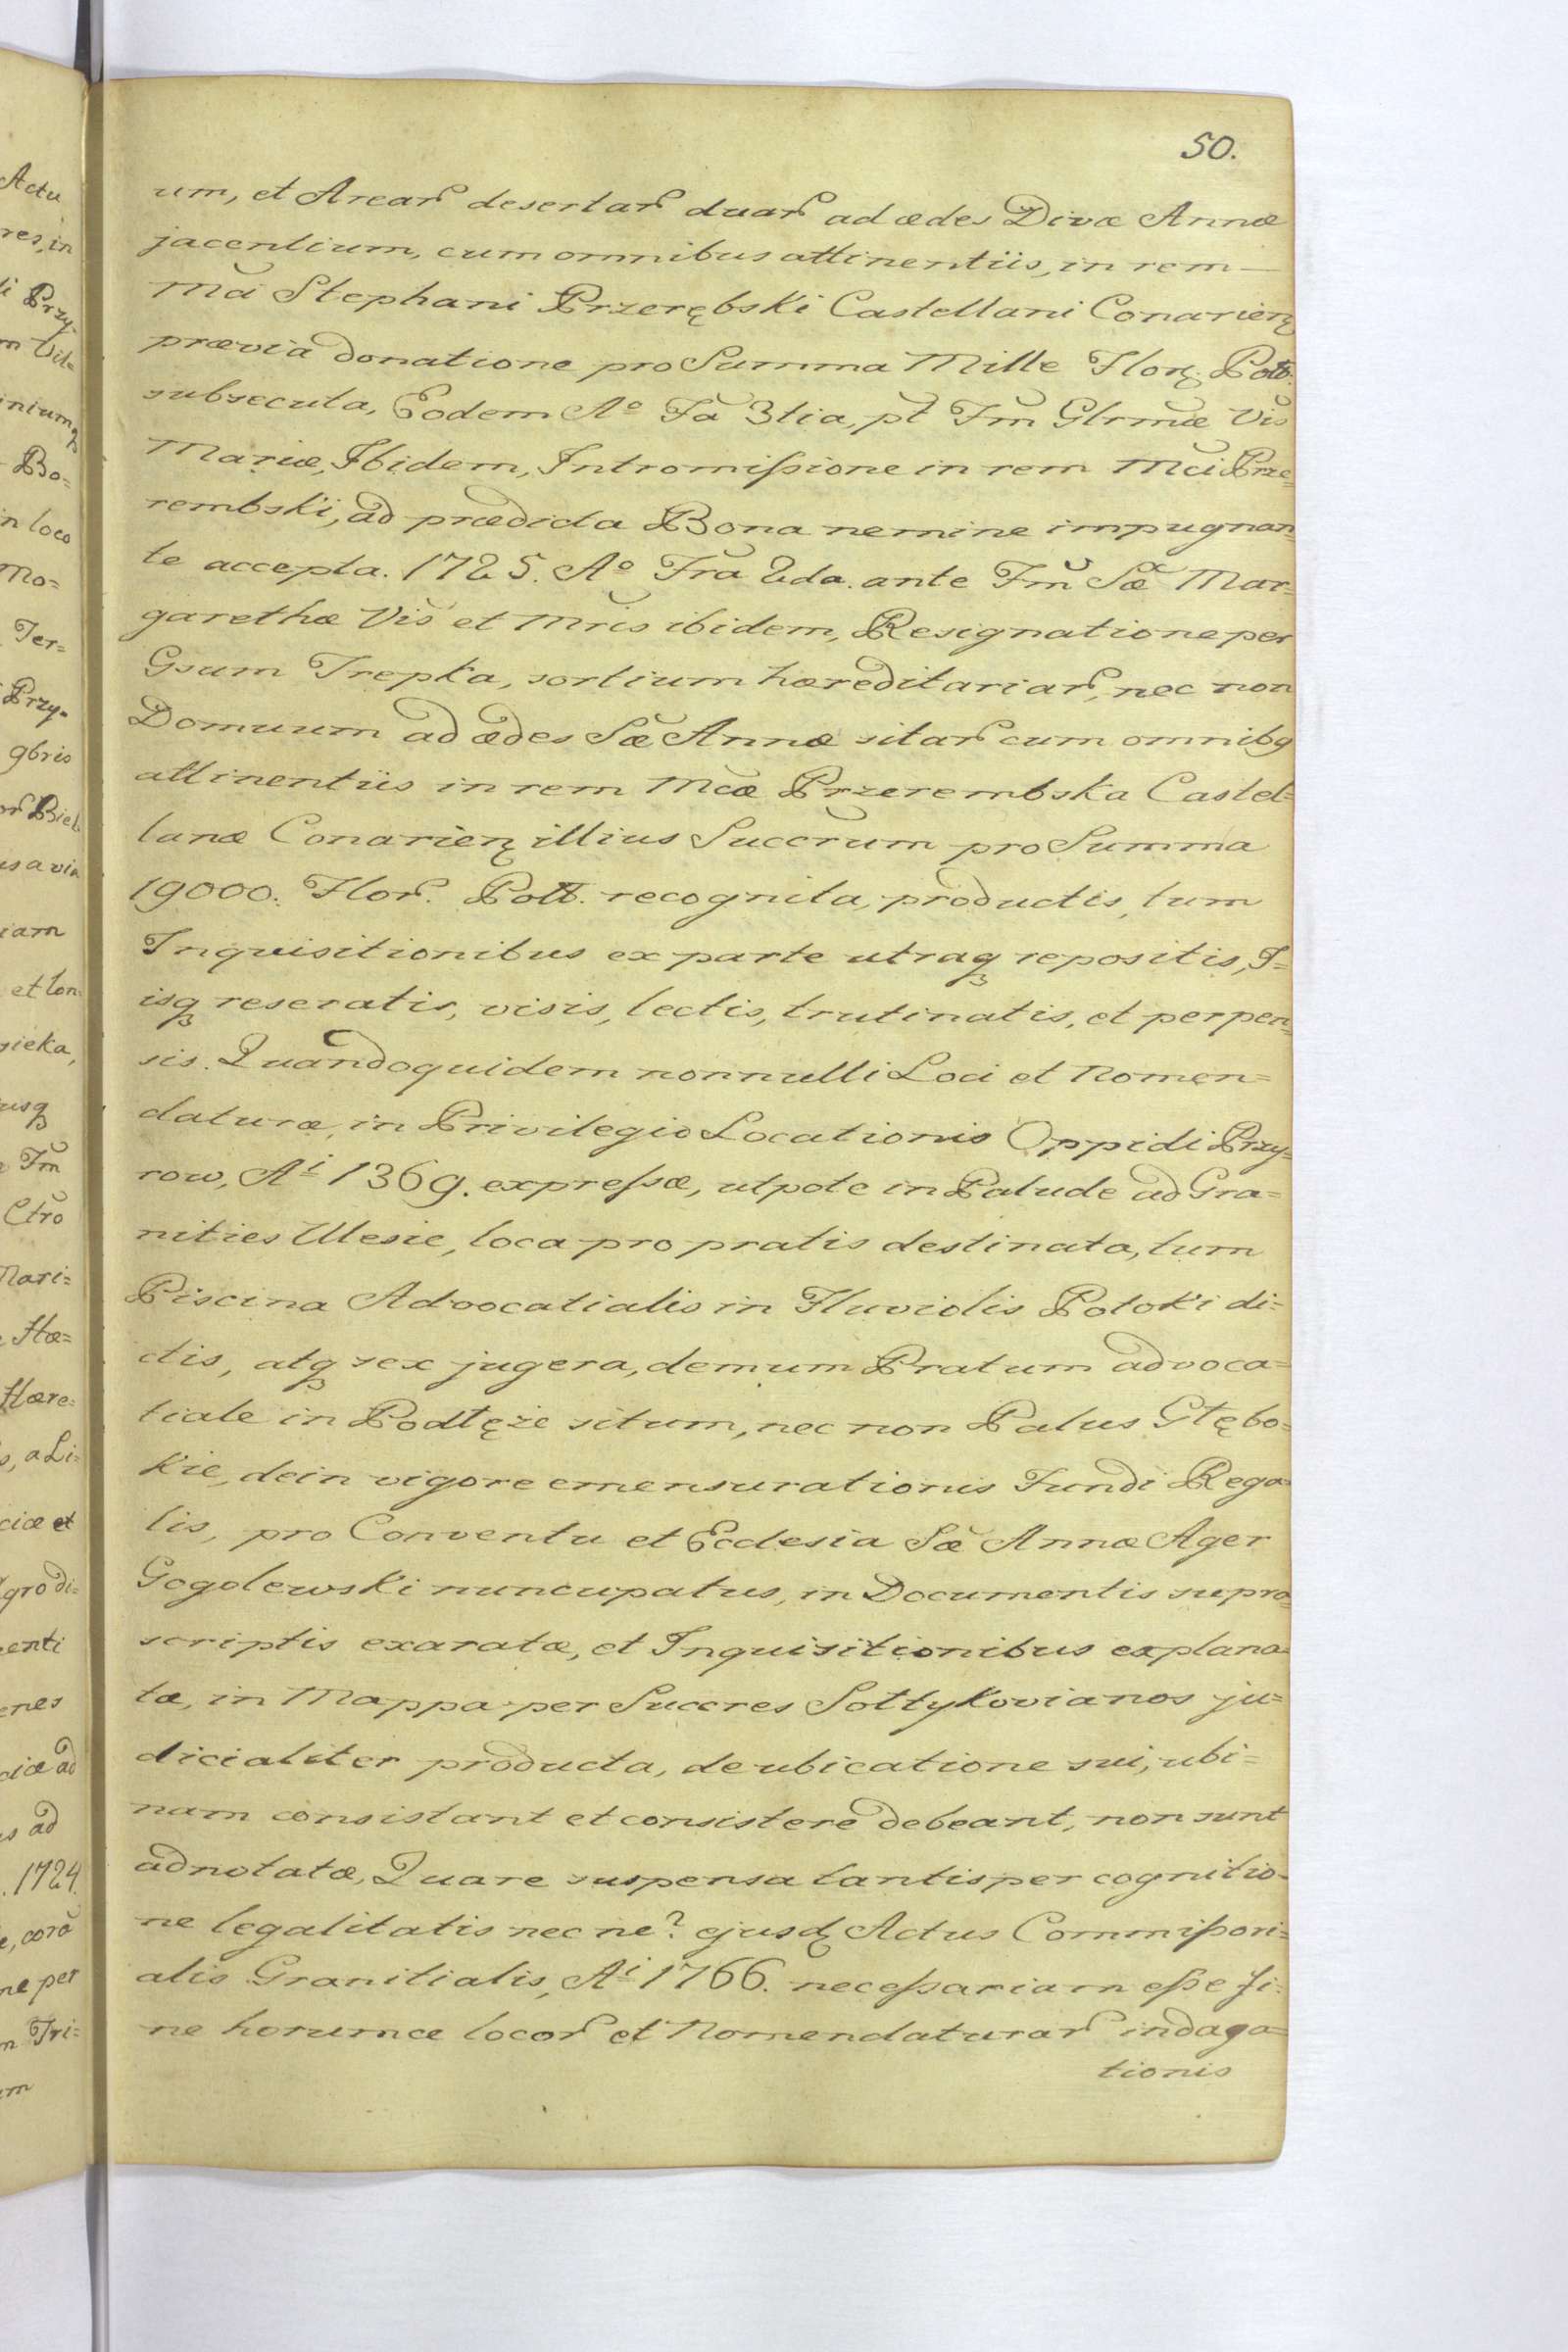 50.
um, et Arear desertar duar ad ædes Divæ Annæ
jacentium, cum omnibus attinentiis, in rem
Mci Stephani Przerębski Castellani Conarien
prævia donatione pro Summa Mille Flor. Poll.
subsecuta, Eodem Aº Fa 3tia, pt Fm Glrmæ Vis
Mariæ, Ibidem, Intromissione in rem Mci Prze=
rembski, ad prædicta Bona nemine impugnan=
te accepta. 1725. Aº Fra 2da. ante Fm Sæ Mar=
garethæ Vis et Mris ibidem, Resignatione per
Gsum Trepka, sortium hæreditariar, nec non
Domuum ad ædes Sæ Annæ sitar cum omnibq
attinentiis in rem Mcæ Przerembska Castel=
lanæ Conarien illius Sucrum pro Summa
19000. Flor. Poll. recognita, productis, tum
Inquisitionibus ex parte utraq repositis, I=
isq reseratis, visis, lectis, trutinatis, et perpen=
sis. Quandoquidem nonnulli Loci et Nomen=
claturæ, in Privilegio Locationis Oppidi Przy=
row, Ai 1369. expressæ, utpote in Palude ad Gra=
nities Ulesie, loca pro pratis destinata, tum
Piscina Advocatialis in Fluviolis Potoki di=
ctis, atq sex jugera, demum Pratum advoca=
tiale in Podłęże situm, nec non Palus Głębo=
kie, dein vigore emensurationis Fundi Rega=
lis, pro Conventu et Ecclesia Sæ Annæ Ager
Gogolewski nuncupatus, in Documentis supra=
scriptis exaratæ, et Inquisitionibus explana=
tæ, in Mappa per Succres Sołtykovianos ju=
dicialiter producta, de ubicatione sui, ubi=
nam consistant et consistere debeant, non sunt
adnotatæ, Quare suspensa tantisper cognitio=
ne legalitatis nec ne? ejusd Actus Commissori=
alis Granitialis, Ai 1766. necessariam esse fi=
ne horumce locor et Nomenclaturar indaga=
tionis